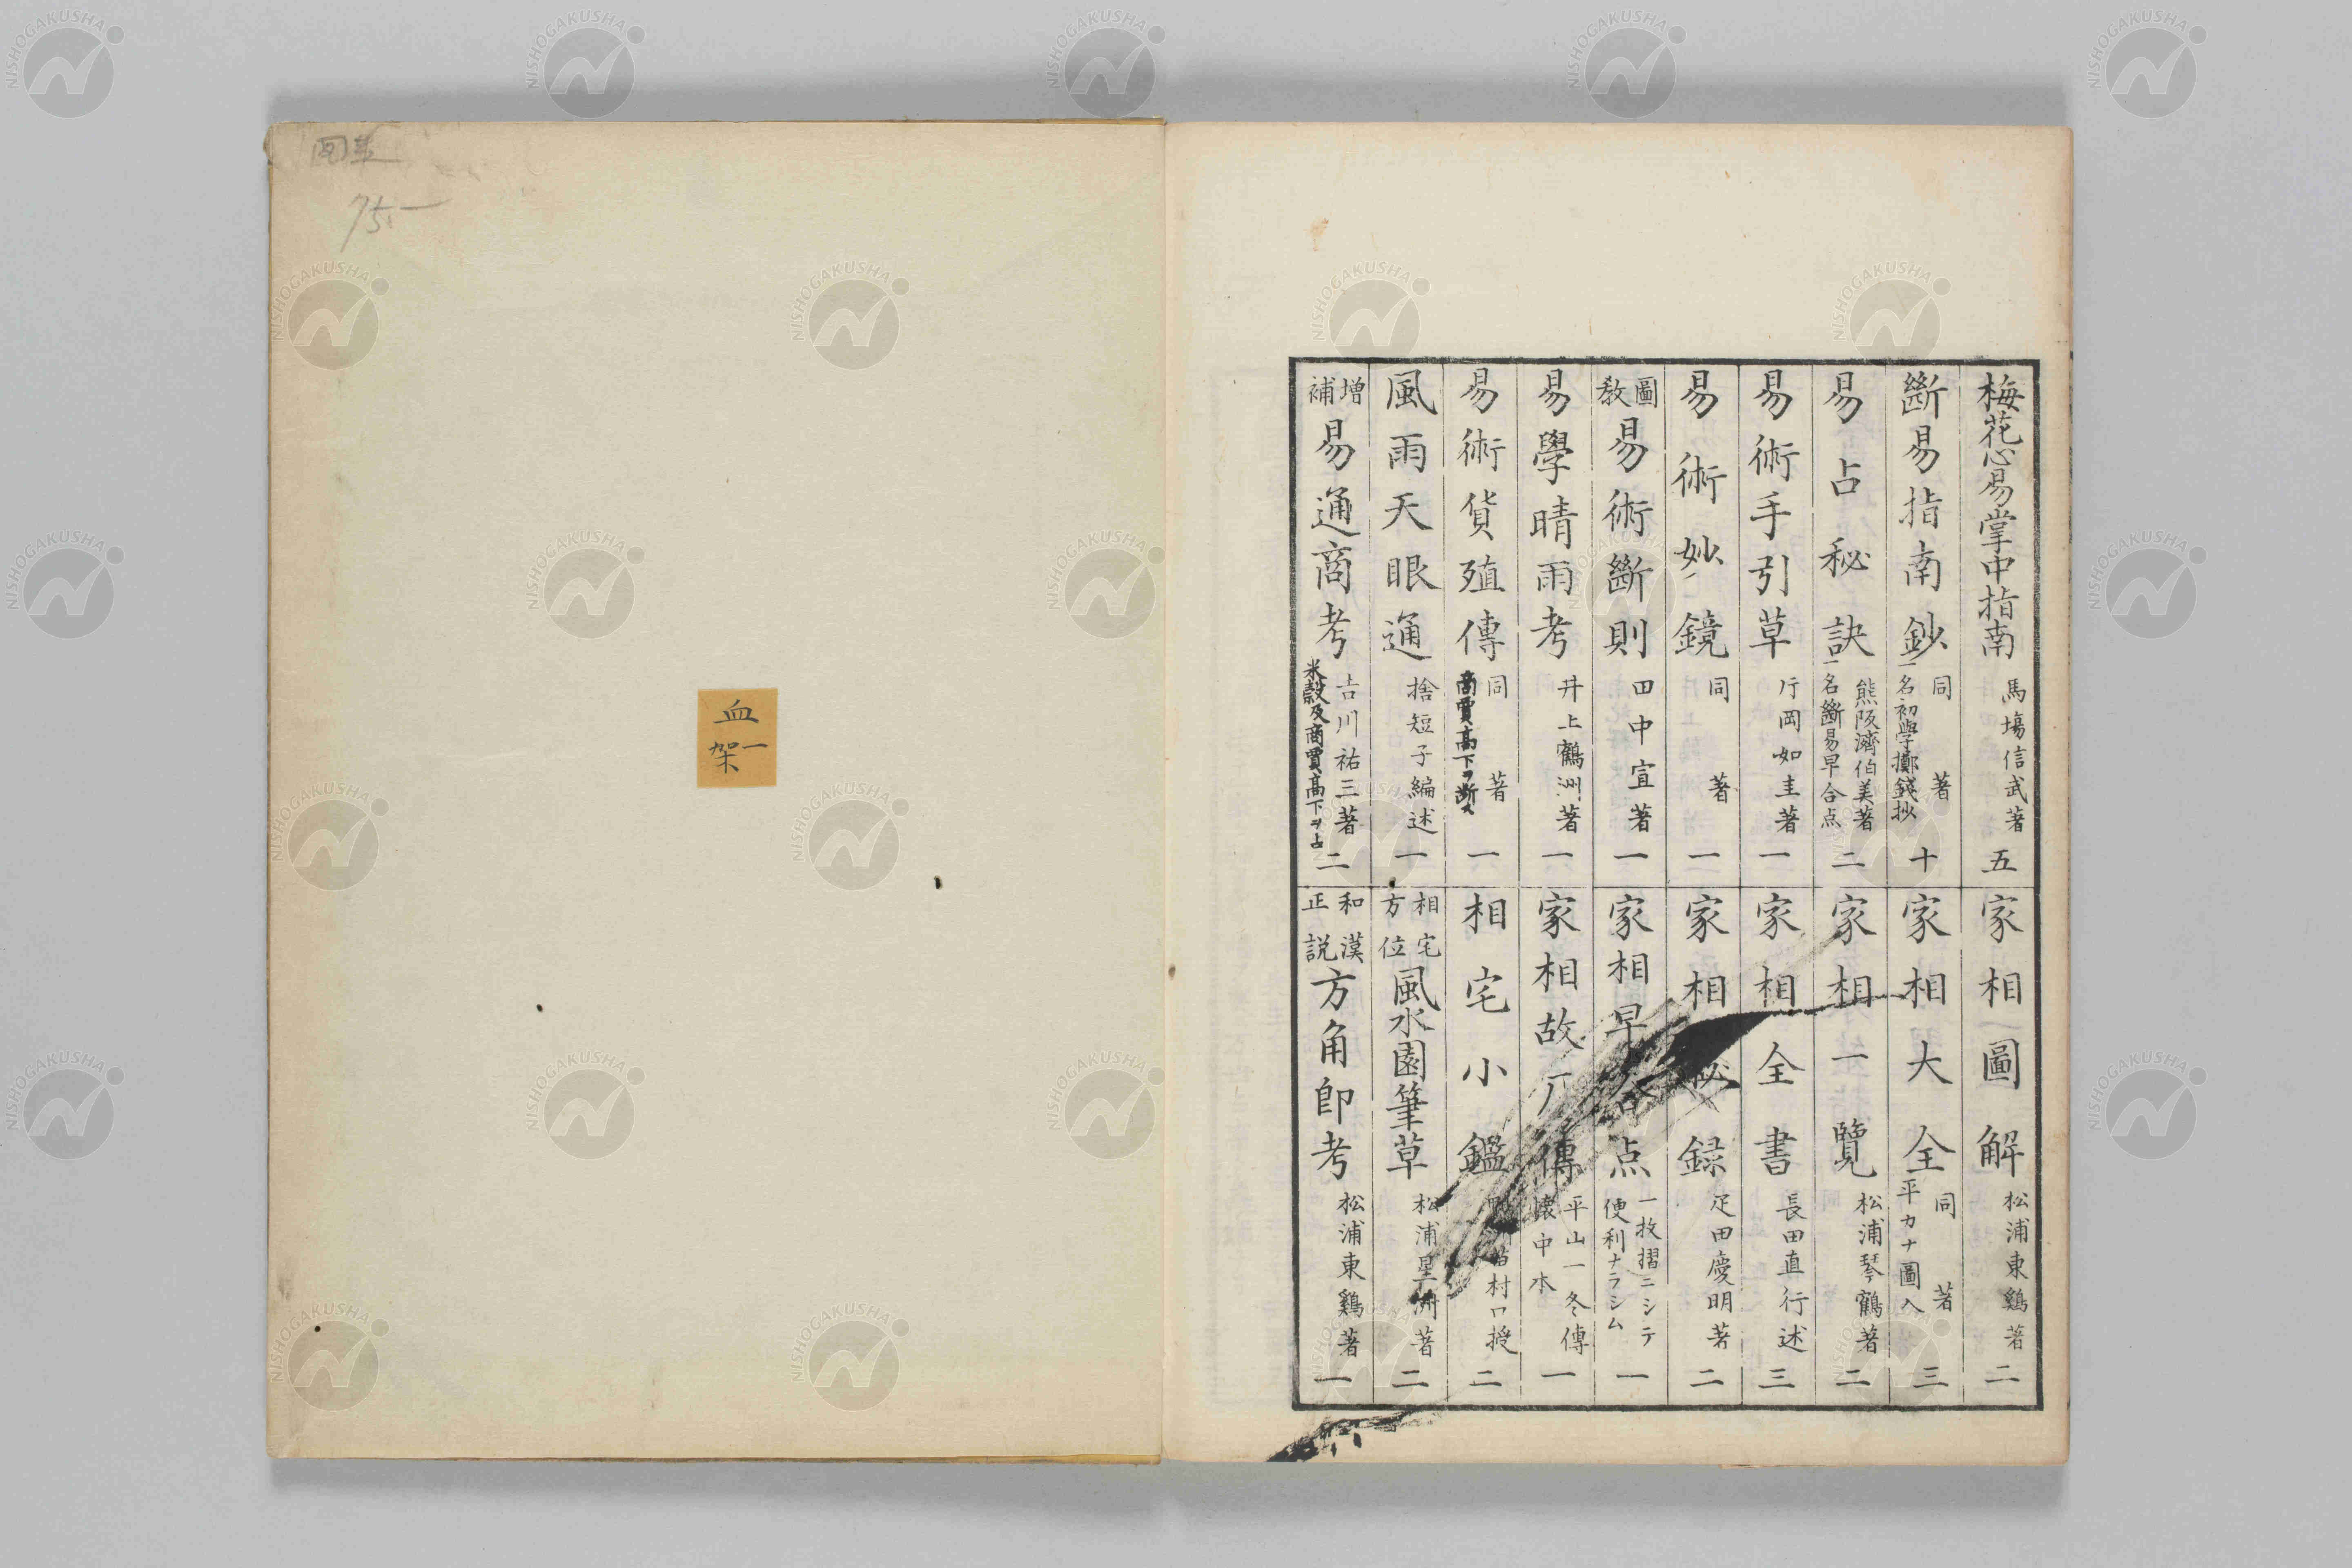 梅花心易掌中指南 馬塲信武著 五
斷易指南鈔 同著 一名初學擲錢抄 十
易占秘訣 熊阪濟伯美著 一名斷易早合点 二
易術手引草 片岡如圭著 一
易術妙鏡 同著 一
圖敎 易術斷則 田中宜著 一
易學晴雨考 井上鶴洲著 一
易術貨殖傳 同著 商賣高下ヲ断ス 一
風雨天眼通 捨短子編述 一
増補 易通商考 吉川祐三著 米穀及商賣高下ヲ占 二
家相圖解 松浦東鷄著 二
家相大全 同著 平カナ圖入 三
家相一覽 松浦琴鶴著 二
家相全書 長田直行述 三
家相秘録 疋田慶明著 二
家相早合点 一枚摺ニシテ便利ナラシム 一
家相故 傳 平山一冬傳 懐中本 一
相宅小鑑 村口授 二
相宅方位 風水園筆草 松浦星洲著 二
和漢正説 方角即考 松浦東鷄著 一
血
一架
75.-
NISHOGAKUSHA